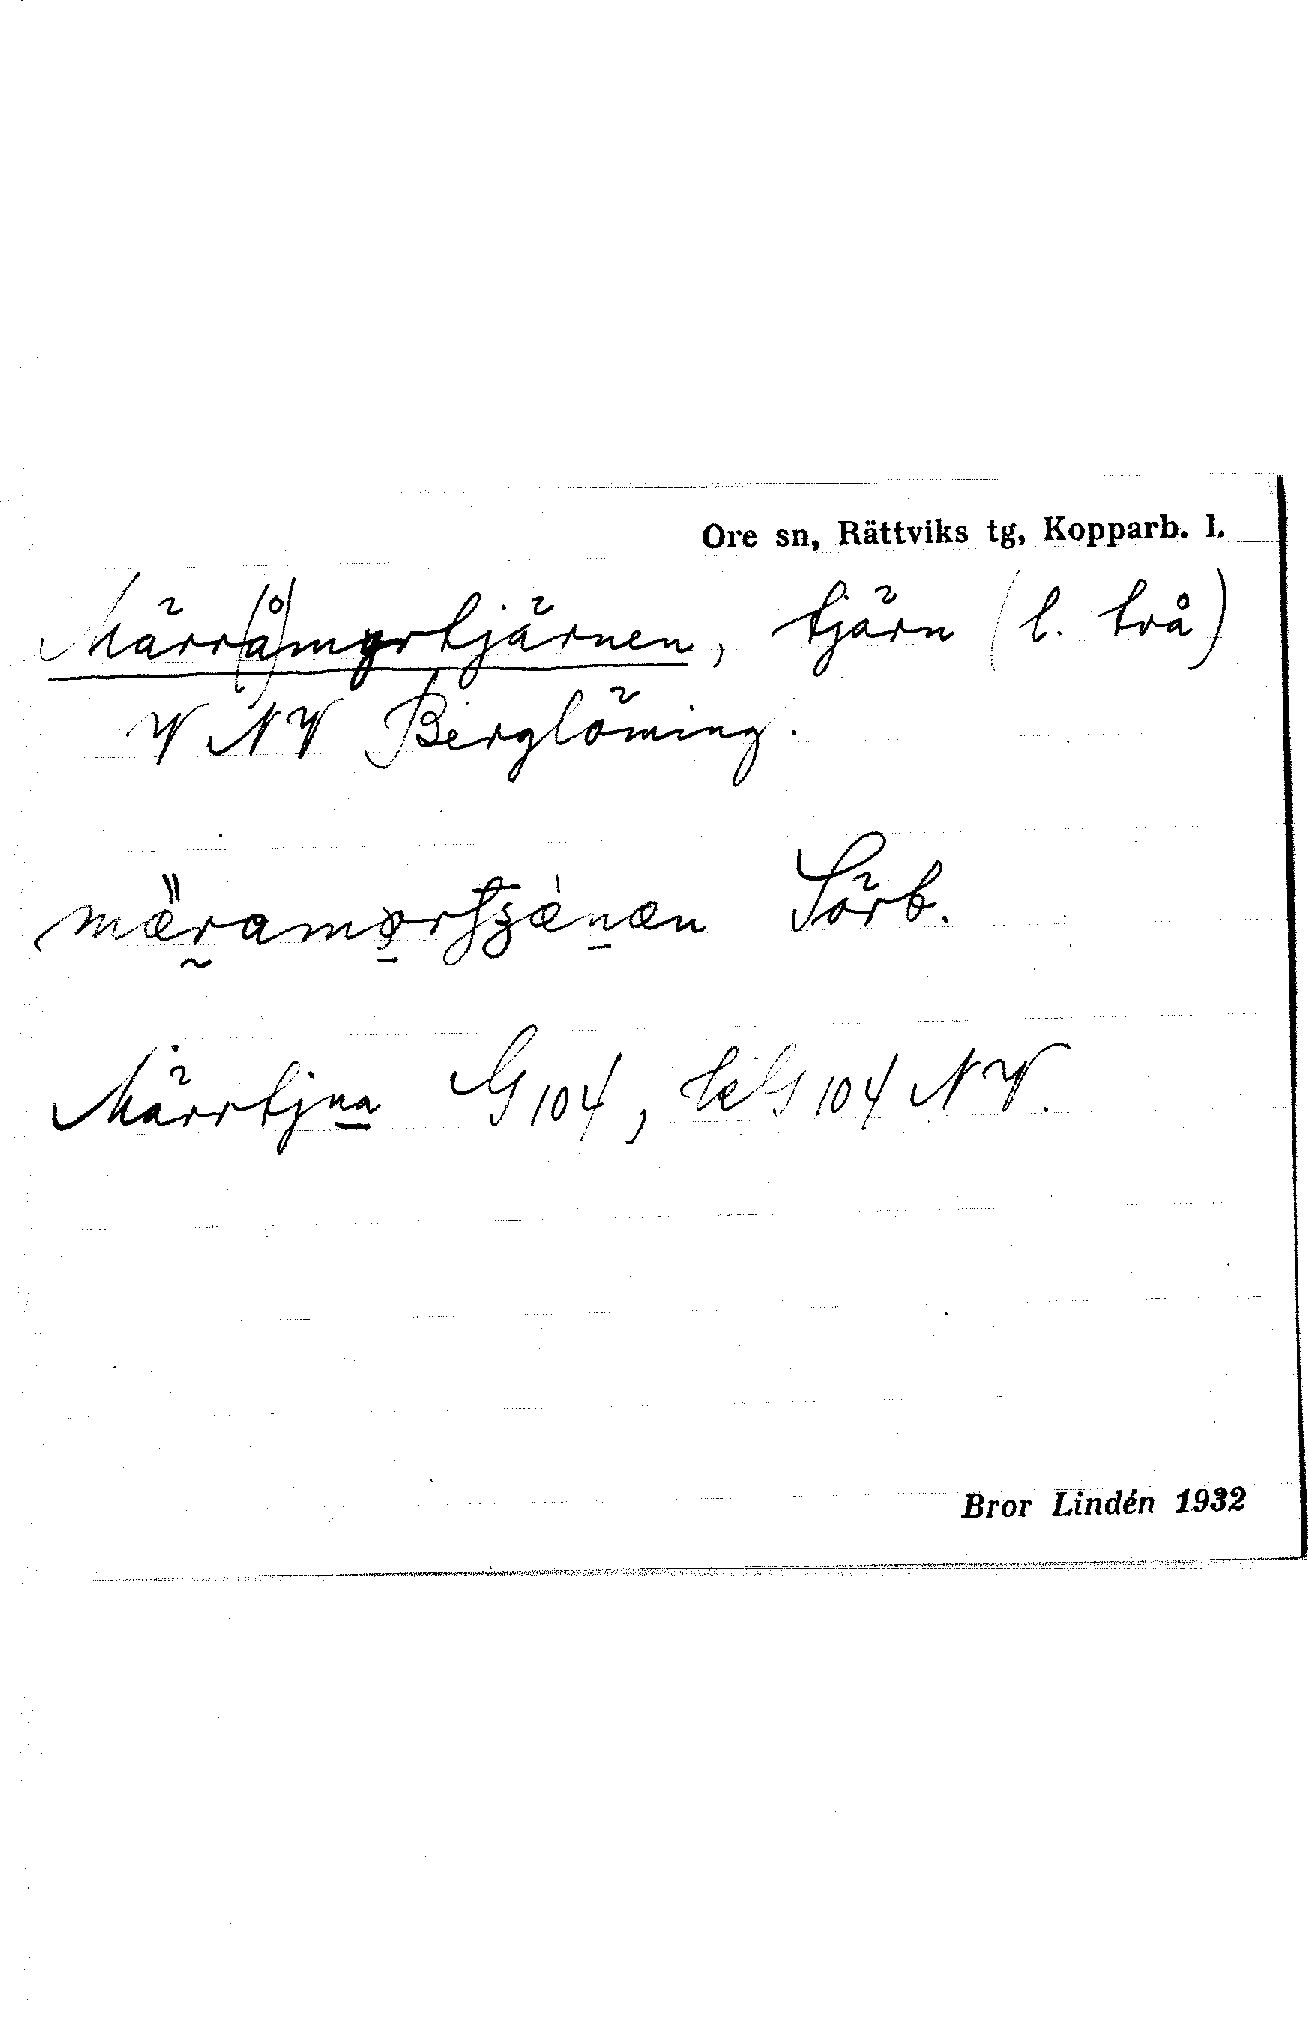 Ore sn, Rättviks tg, Kopparb. l.
Märr(å)myrtjärnen, tjärn (l. två)
VNV Berglöming.
Sörb.
Märrtjna G104, LeG104NV.
Bror Lindén 1932